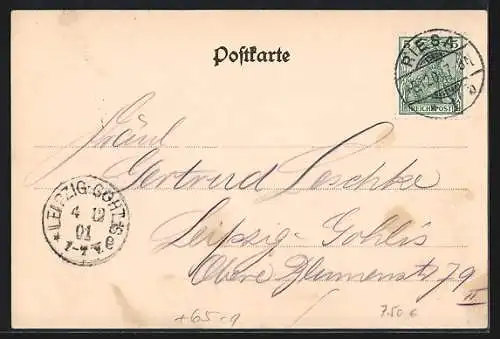 Postkarte
5 5
REICHSPOST
RIESA
Fräul
Gertrud Loschke
Leipzig-Gohlis
Obere Blumenstr 79
II
LEIPZIG-GOHLIS
4 12
01
7-8 V.
e
+65-9
7.50 €